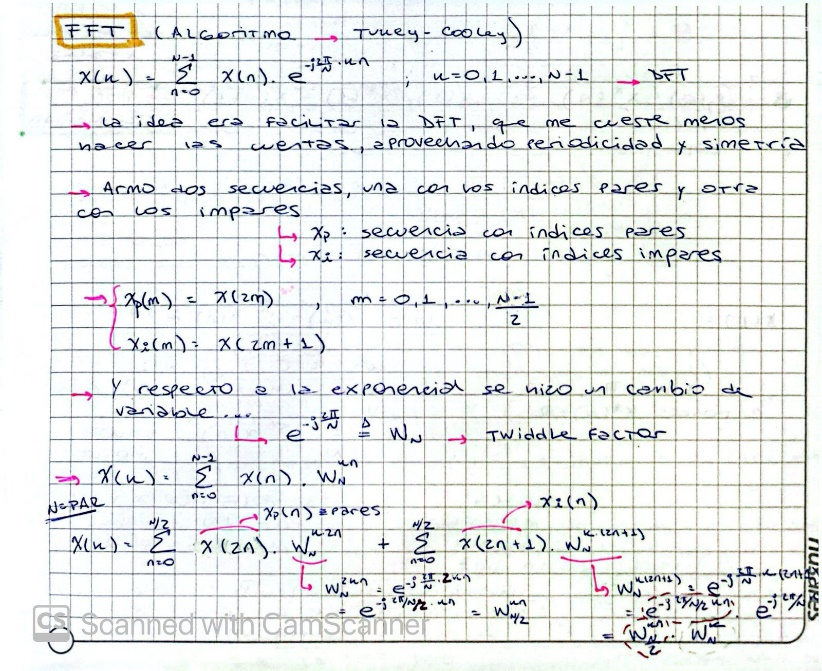 FFT (ALGORITMO → TUKEY-COOLEY)
X(k) = Σ_{n=0}^{N-1} X(n). e^{-j2π/N .kn} ; k=0,1,...,N-1 → DFT
→ La idea era facilitar la DFT, que me cueste menos
hacer las cuentas, aprovechando periodicidad y simetría
→ Armo dos secuencias, una con los índices pares y otra
con los impares
↳ Xp: secuencia con índices pares
↳ Xi: secuencia con índices impares
→ { Xp(m) = X(2m) , m=0,1,...,N-1/2
Xi(m) = X(2m+1)
→ Y respecto a la exponencial se hizo un cambio de
variable ...
↳ e^{-j2π/N} ≜ W_N → TWIDDLE FACTOR
⇒ X(k) = Σ_{n=0}^{N-1} X(n). W_N^{kn}
N=PAR
→ Xp(n) ≡ pares → Xi(n)
X(k) = Σ_{n=0}^{N/2} X(2n). W_N^{k2n} + Σ_{n=0}^{N/2} X(2n+1). W_N^{k(2n+1)}
↳ W_N^{2kn} = e^{-j2π/N .2kn} ↳ W_N^{k(2n+1)} = e^{-j2π/N .k(2n+1)}
= e^{-j2π/N/2 .kn} = W_{N/2}^{kn} = e^{-j2π/N/2 kn} . e^{-j2π/N}
= W_{N/2}^{kn} . W_N^{k}
CS Scanned with CamScanner
nuskares